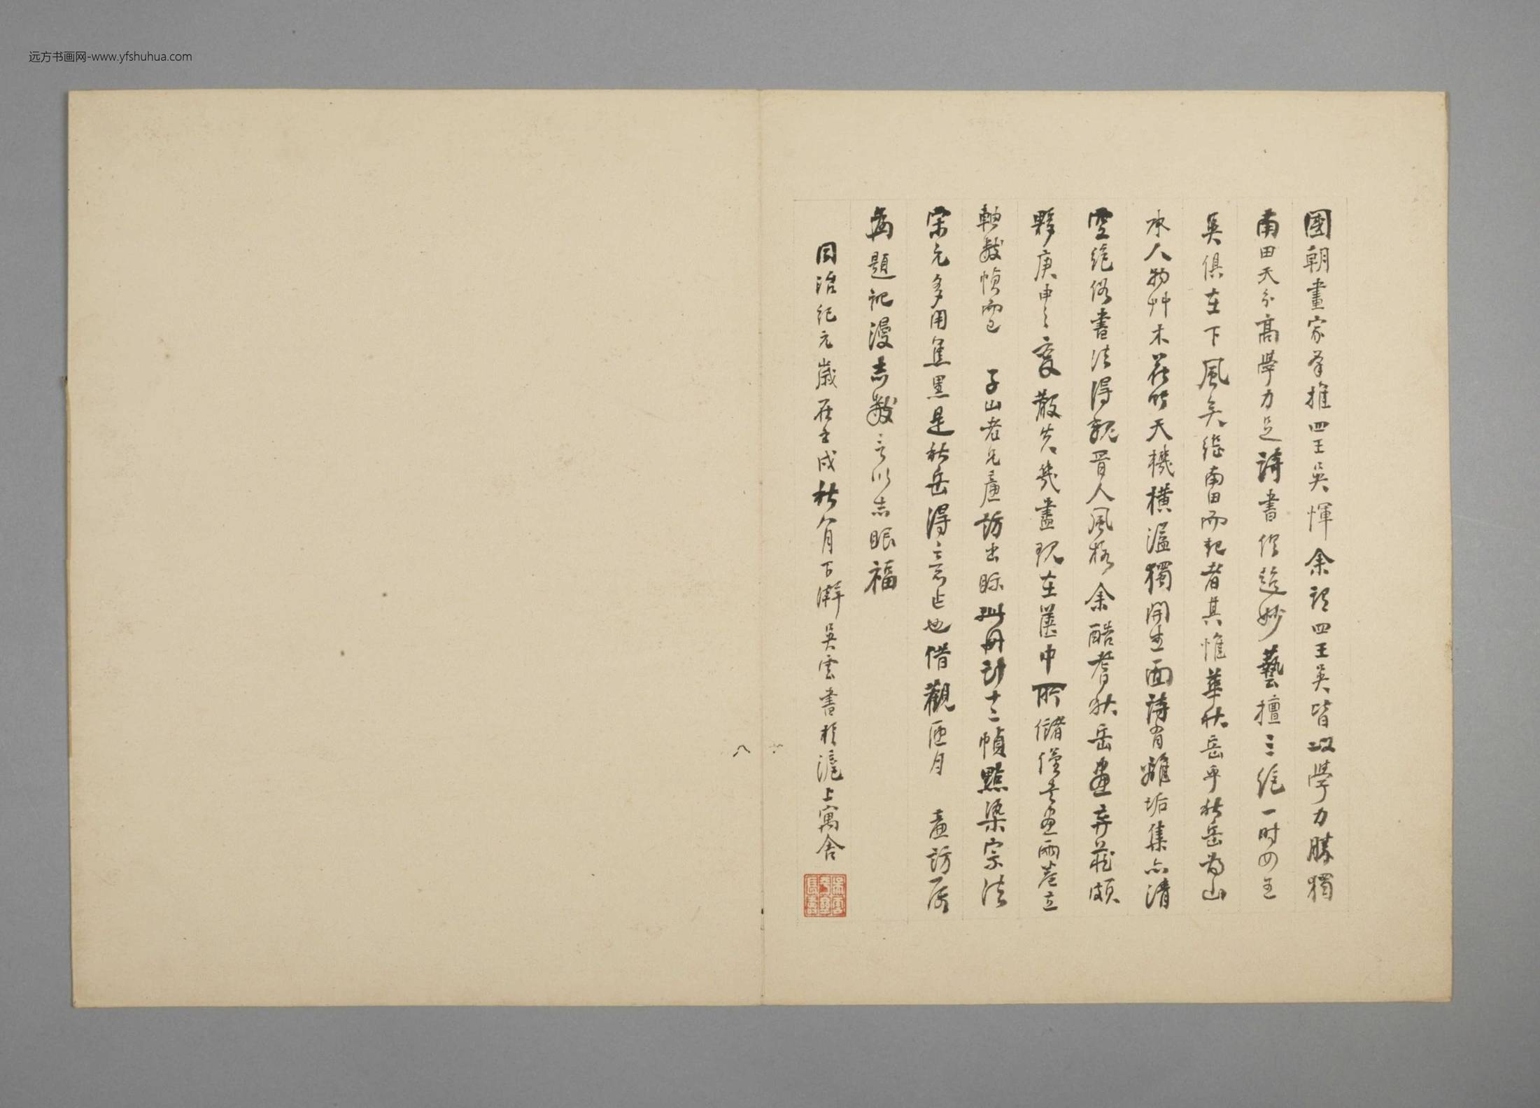 远方书画网-www.yfshuhua.com
國朝畫家羣推四王吳惲余謂四王吳皆以學力勝獨
南田天分高學力足詩書俱造妙藝擅三絕一时四王
吳俱在下風矣繼南田而起者其惟華秋岳乎秋岳當山
水人物艸木花竹天機橫溢獨開生面詩有離垢集亦清
空絕俗書法得魏晉人風格余酷嗜秋岳畫弃藏頗
夥庚申之變散失幾盡現在篋中所儲僅長卷兩卷立
軸數幀而已 子山老兄廉訪出眎此冊計十二幀點染宗法
宋元多用焦墨是秋岳得意之作也借觀匝月 廉訪屬
為題記漫志數言以志眼福
同治紀元歲在壬戌秋八月下澣吳雲書於滬上寓舍
八